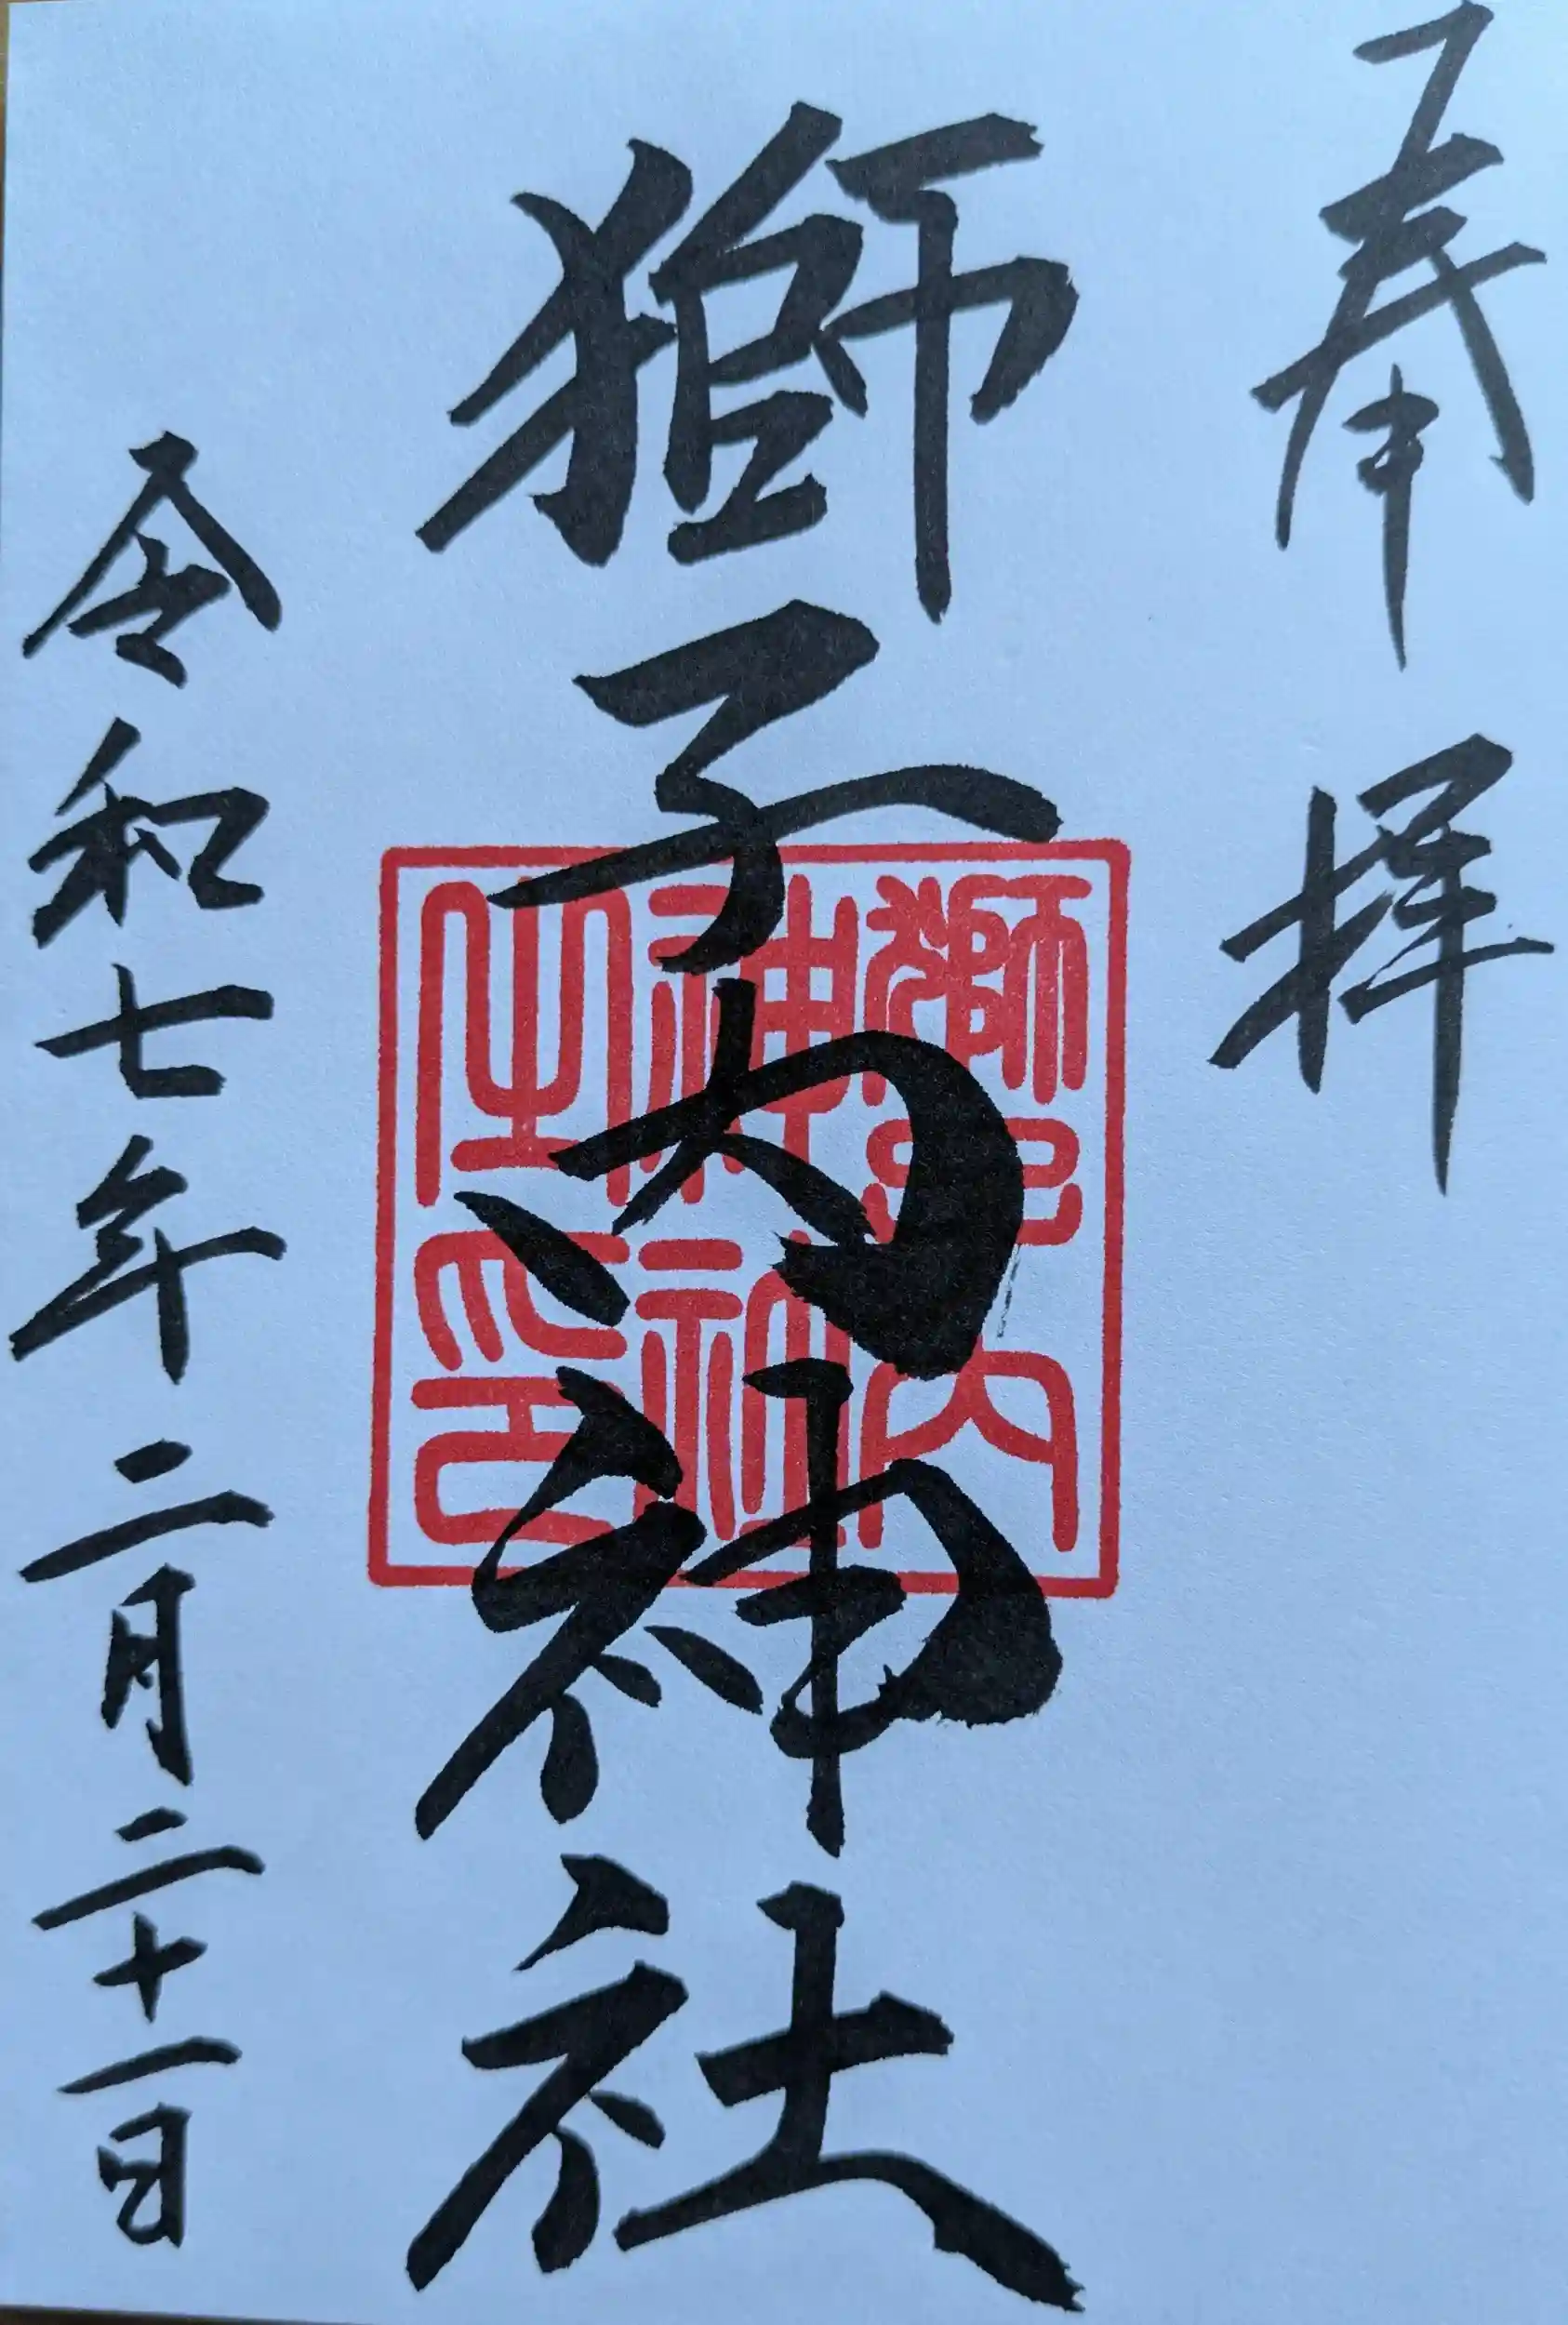 奉拝
獅子内神社
獅子内
神社
之印
令和七年二月二十一日